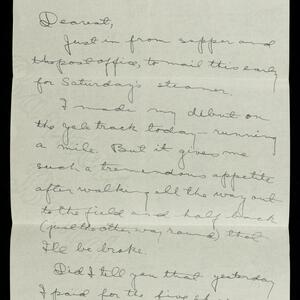 Dearest,
Just in from supper and
the post office, to mail this early
for Saturday's steamer.
I made my debut on
the Yale track today - running
a mile. But it gives me
such a tremendous appetite
after walking all the way out
to the field and half back
(just the other way round) that
I'll be broke.
Did I tell you that yesterday
I paid for the five